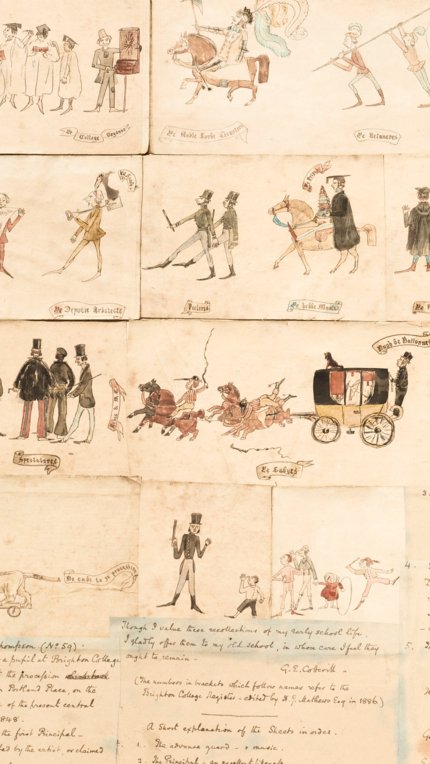 Ye College Beyonse
Ye Noble Lorde Clevyton
Ye Retayners
Ye Deputie Architecte
Victims
Ye Principal
Ye noble Mount
Spectatores
Ye Ladyes
Ye ende to ye processione
Though I value these recollections of my early school life
I gladly offer them to my old school, in whose care I feel they
ought to remain.
G. E. Cotterill
(The numbers in brackets which follow names refer to the
Brighton College Register - edited by H. J. Mathews Esq in 1886)
A short explanation of the Sheets in order.
1. The advance guard - & music.
2. The Principal - an excellent likeness
hompson (No 59).
a pupil at Brighton College
the procession
Portland Place, on the
of the present central
848.
the first Principal -
ted by the artist, or claimed
3.
4.
5.